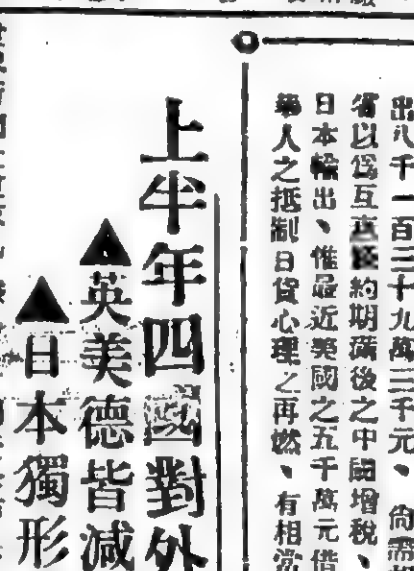 出八千一百三十九萬三千元、尙需
省以爲互惠條約期滿後之中國增稅、
日本輸出、惟最近美國之五千萬元借
華人之抵制日貨心理之再燃、有相當
上半年四國對外
▲英美德皆減
▲日本獨形